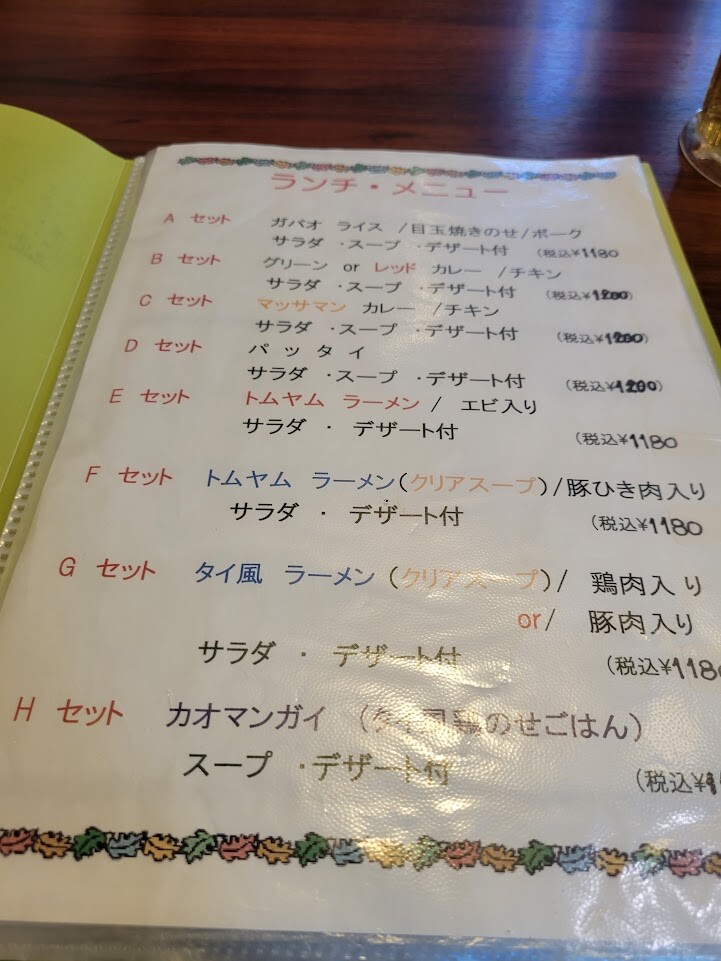 ランチ・メニュー
A セット ガパオ ライス /目玉焼きのせ/ポーク
サラダ ・スープ ・デザート付 (税込¥1180
B セット グリーン or レッド カレー /チキン
サラダ ・スープ ・デザート付 (税込¥1200)
C セット マッサマン カレー /チキン
サラダ ・スープ ・デザート付 (税込¥1200)
D セット パッタイ
サラダ ・スープ ・デザート付 (税込¥1200)
E セット トムヤム ラーメン / エビ入り
サラダ ・ デザート付 (税込¥1180
F セット トムヤム ラーメン(クリアスープ)/豚ひき肉入り
サラダ ・ デザート付 (税込¥1180
G セット タイ風 ラーメン (クリアスープ)/ 鶏肉入り
or/ 豚肉入り
サラダ ・ デザート付 (税込¥1180
H セット カオマンガイ (タイ風鶏のせごはん)
スープ ・デザート付 (税込¥